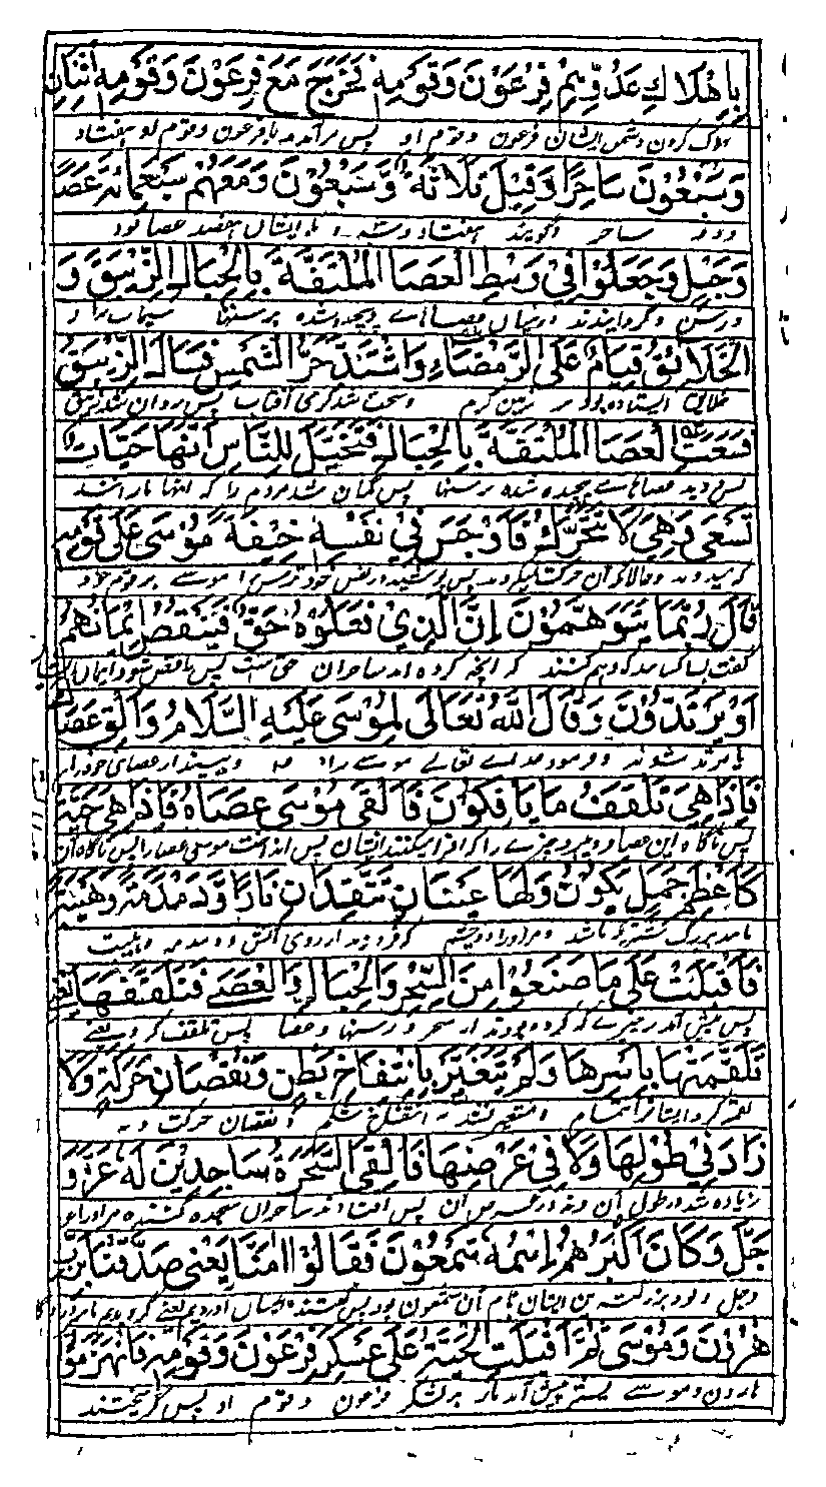 بِاِهْلَاكِ عَدُوِّهِمْ فِرْعَوْنَ وَقَوْمِهٖ فَخَرَجَ مَعَ فِرْعَوْنَ وَقَوْمِهٖ اثْنَانِ
هلاک کردن دشمن ایشان فرعون وقوم او پس برآمد با فرعون وقوم او هفتاد
وَسَبْعُوْنَ سَاحِرًا وَقِيْلَ ثَلَاثَةٌ وَّسَبْعُوْنَ وَمَعَهُمْ سَبْعُمِائَةِ عَصًا
ودو ساحر وگویند هفتاد وسه و با ایشان هفصد عصا بود
وَحَبْلٍ وَجَعَلُوْا فِيْ وَسْطِ الْعَصَا الْمُلْتَفَّةِ بِالْحِبَالِ الزِّيْبَقَ وَ
ورسن وگردانیدند درمیان عصاهاے پیچیده شده برسنها سیماب را و
الْخَلَائِقُ قِيَامٌ عَلَى الرَّمْضَاءِ وَاشْتَدَّ حَرُّ الشَّمْسِ فَسَالَ الزِّيْبَقُ
خلائق ایستاده بودند بر زمین گرم وسخت شد گرمی آفتاب پس روان شد زیبق
فَسَعَتِ الْعَصَا الْمُلْتَفَّةُ بِالْحِبَالِ فَتَخَيَّلَ لِلنَّاسِ اَنَّهَا حَيَّاتٌ
پس دوید عصاهاے پیچیده شده برسنها پس گمان شد مردم را که اینها ماراند
تَسْعٰى وَهِيَ لَا تَتَحَرَّكُ فَاَوْجَسَ فِيْ نَفْسِهٖ خِيْفَةً مُّوْسٰى عَلٰى قَوْمِهٖ
که میدوند وحالانکه آن حرکت نمیکردند پس پوشید در نفس خود ترس را موسے بر قوم خود
قَالَ رُبَّمَا يَتَوَهَّمُوْنَ اِنَّ الَّذِيْ فَعَلُوْهُ حَقٌّ فَيَنْقُصُ اِيْمَانُهُمْ
گفت بسا که وهم کنند که آنچه کرده اند ساحران حق است پس ناقص شود ایمان
اَوْ يَرْتَدُّوْنَ وَقَالَ اللّٰهُ تَعَالٰى لِمُوْسٰى عَلَيْهِ السَّلَامُ وَاَلْقِ عَصَا
یا مرتد شوند وفرمود خداے تعالے موسے را وبینداز عصای خود را
فَاِذَا هِيَ تَلْقَفُ مَا يَأْفِكُوْنَ فَاَلْقٰى مُوْسٰى عَصَاهُ فَاِذَا هِيَ حَيَّةٌ
پس ناگاه این عصا چیزے را که افترا میکنند ایشان پس انداخت موسی عصا را پس ناگاه آن
كَاَعْظَمِ جَمَلٍ يَكُوْنُ وَلَهَا عَيْنَانِ تَتَّقِدَانِ نَارًا وَّدَمْدَمَةٌ وَهَيْئَةٌ
مانند بزرگ شتریکه باشد ومر او را دو چشم از روی آتش ودمدمه وهیئت
فَاَقْبَلَتْ عَلٰى مَا صَنَعُوْا مِنَ السِّحْرِ وَالْحِبَالِ وَالْعِصِيِّ فَتَلَقَّفَهَا يَعْنِيْ
پس پیش آمد بر چیزے که کرده بودند از سحر ورسنها وعصا پس تلقف کرد یعنے
تَلَقَّمَتْهَا بِاَسْرِهَا وَلَمْ يَتَغَيَّرْ بِانْتِفَاخِ بَطْنٍ وَّنُقْصَانِ حَرَكَةٍ وَلَا
لقمه کرد اینها را تمام ومتغیر نشد به انتفاخ شکم ونقصان حرکت ونه
زَادَ فِيْ طُوْلِهَا وَلَا فِيْ عَرْضِهَا فَاُلْقِيَ السَّحَرَةُ سَاجِدِيْنَ لَهٗ عَزَّ وَ
زیاده شد در طول آن ونه در عرض آن پس افتادند ساحران سجده کننده مر او را عز
جَلَّ وَكَانَ اَكْبَرُهُمْ اِسْمُهٗ شَمْعُوْنُ فَقَالُوْا اٰمَنَّا يَعْنِيْ صَدَّقْنَا بِرَبِّ
وجل وبود بزرگ ایشان نام آن شمعون بود پس گفتند ایمان آوردیم یعنے
هٰرُوْنَ وَمُوْسٰى ثُمَّ اَقْبَلَتِ الْحَيَّةُ عَلٰى عَسْكَرِ فِرْعَوْنَ وَقَوْمِهٖ فَانْهَزَمُوْا
هارون وموسے پستر پیش آمد مار بر لشکر فرعون وقوم او پس گریختند